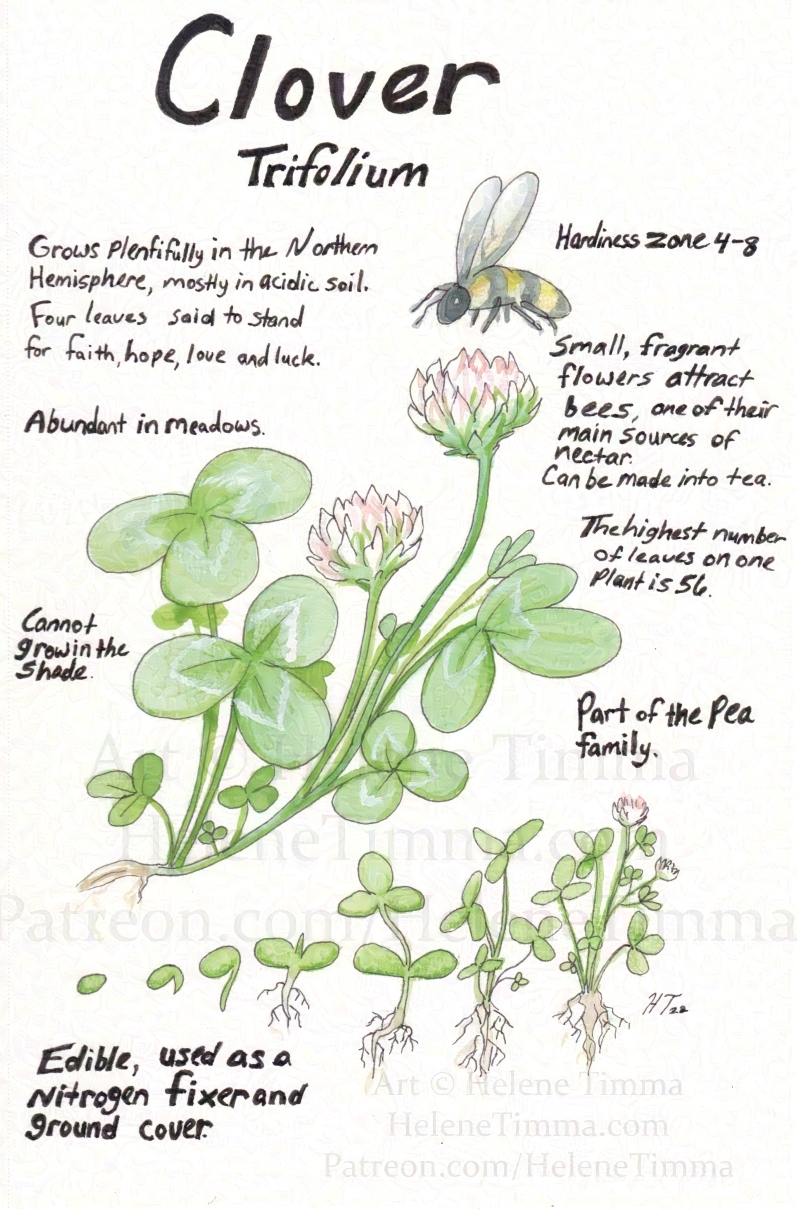 Clover
Trifolium
Grows Plentifully in the Northern
Hemisphere, mostly in acidic soil.
Four leaves said to stand
for faith, hope, love and luck.
Abundant in meadows.
Hardiness zone 4-8
Small, fragrant
flowers attract
bees, one of their
main sources of
nectar.
Can be made into tea.
The highest number
of leaves on one
Plant is 56.
Cannot
grow in the
Shade.
Part of the Pea
family.
Art © Helene Timma
HeleneTimma.com
Patreon.com/HeleneTimma
HT 22
Edible, used as a
Nitrogen fixer and
ground cover.
Art © Helene Timma
HeleneTimma.com
Patreon.com/HeleneTimma